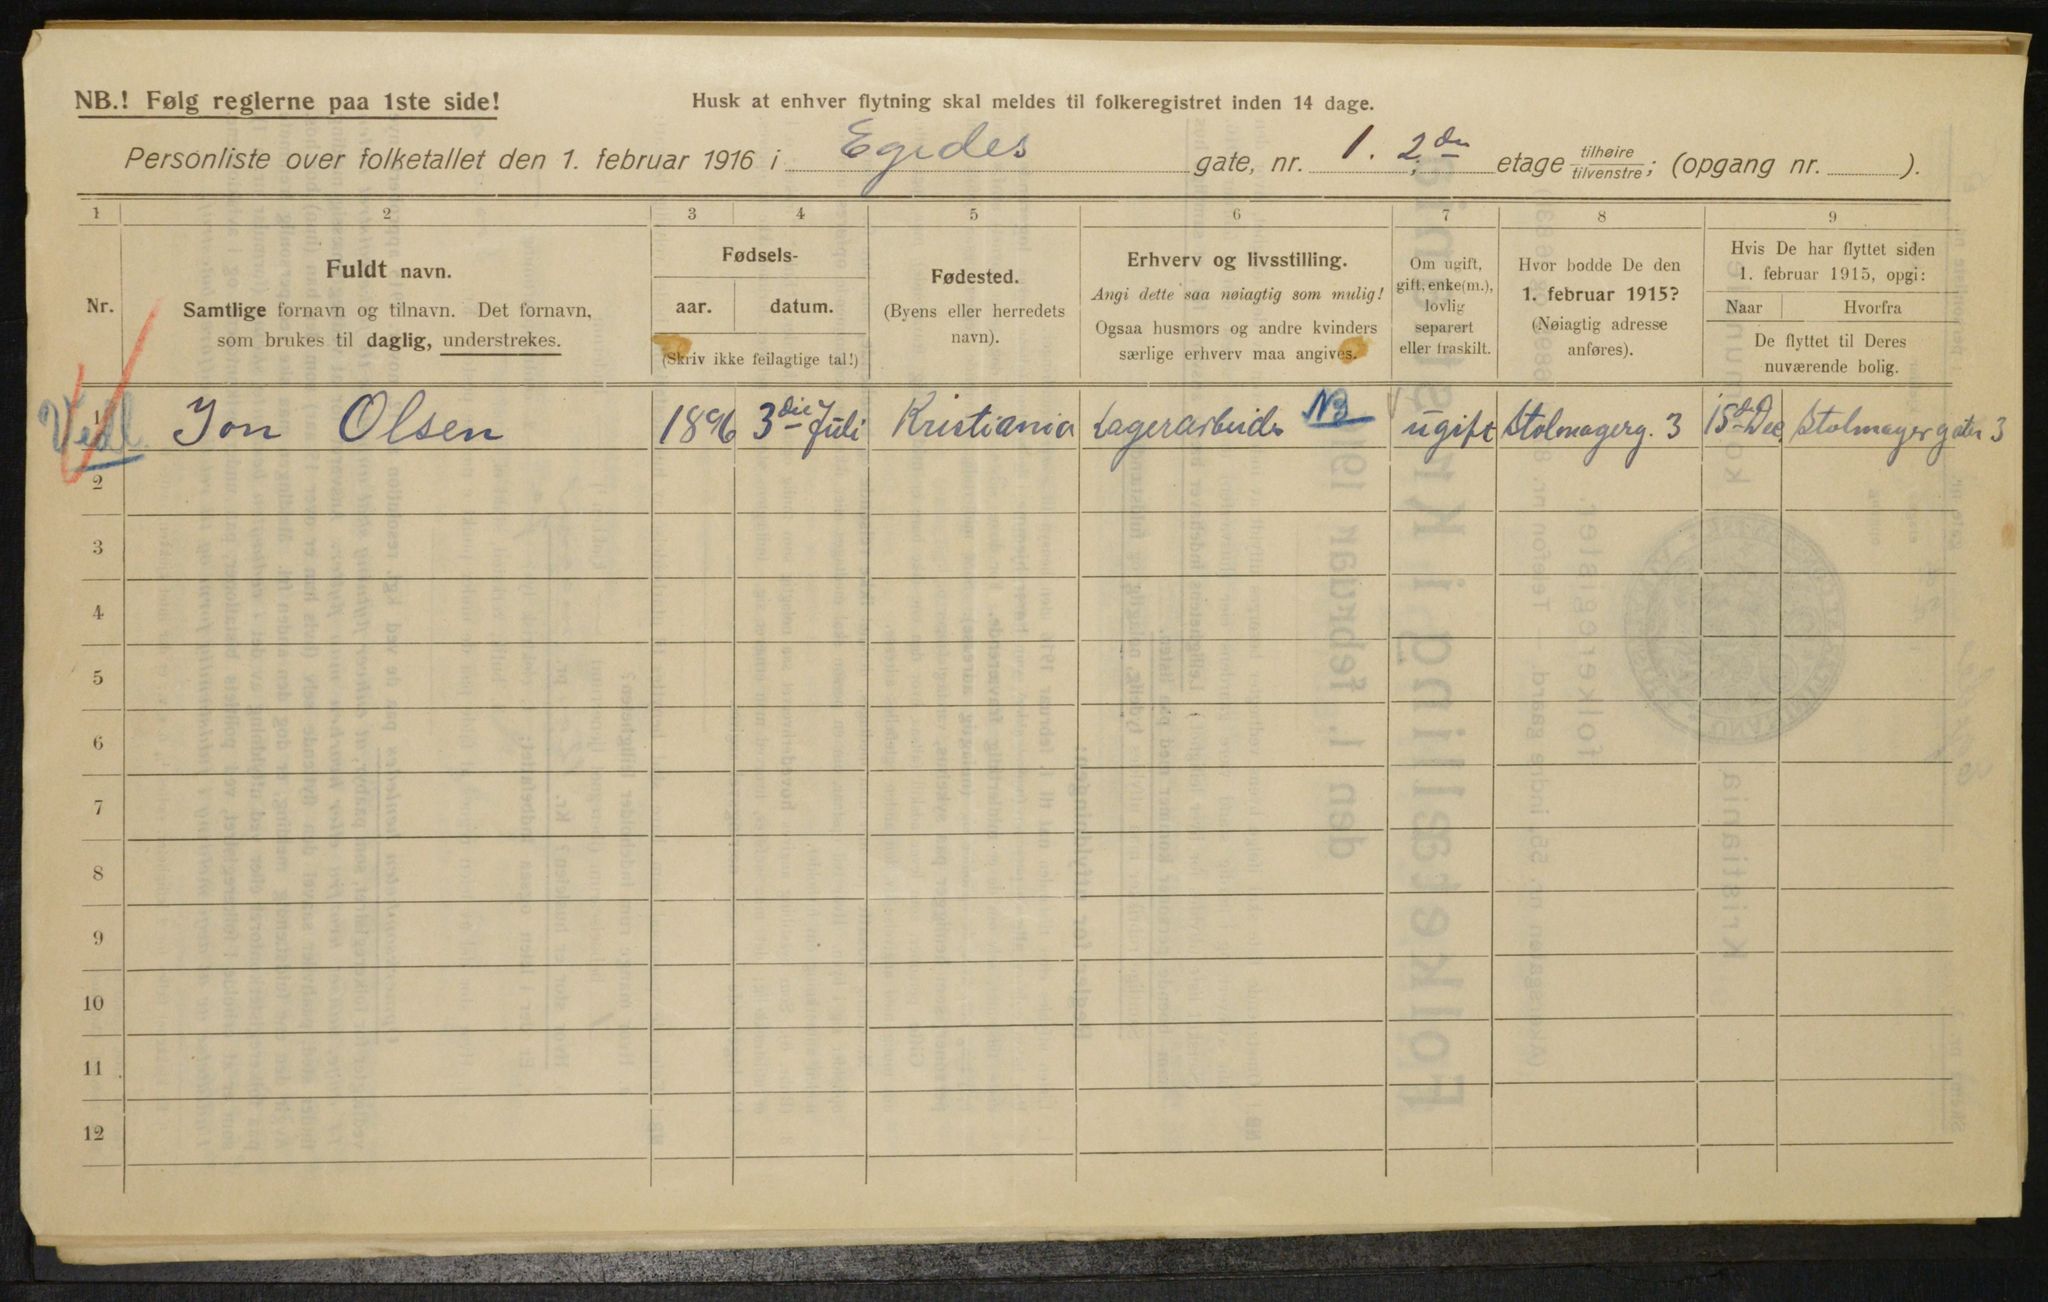 NB.! Følg reglerne paa 1ste side!
Husk at enhver flytning skal meldes til folkeregistret inden 14 dage.
Personliste over folketallet den 1. februar 1916 i Egedes gate, nr. 1. ; 2den etage tilhøire/tilvenstre; (opgang nr. ).
1 2 3 4 5 6 7 8 9
Nr.
Fuldt navn.
Samtlige fornavn og tilnavn. Det fornavn,
som brukes til daglig, understrekes.
Fødsels-
aar. datum.
(Skriv ikke feilagtige tal!)
Fødested.
(Byens eller herredets
navn).
Erhverv og livsstilling.
Angi dette saa nøiagtig som mulig!
Ogsaa husmors og andre kvinders
særlige erhverv maa angives.
Om ugift,
gift, enke(m.),
lovlig
separert
eller fraskilt.
Hvor bodde De den
1. februar 1915?
(Nøiagtig adresse
anføres).
Hvis De har flyttet siden
1. februar 1915, opgi:
Naar Hvorfra
De flyttet til Deres
nuværende bolig.
Vedl. 1 Jon Olsen 1896 3die Juli Kristiania Lagerarbeider NB ugift Stolmagerg. 3 15de Dec Stolmager gaten 3
2
3
4
5
6
7
8
9
10
11
12